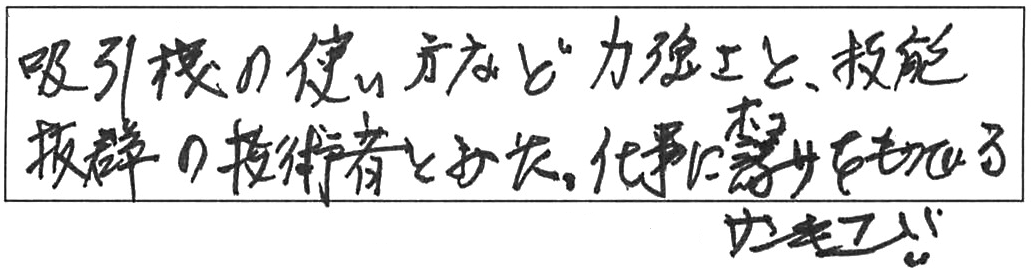 吸引機の使い方など力強さと、技能
抜群の技術者とみた。仕事に誇りをもっている
サンキュー!!